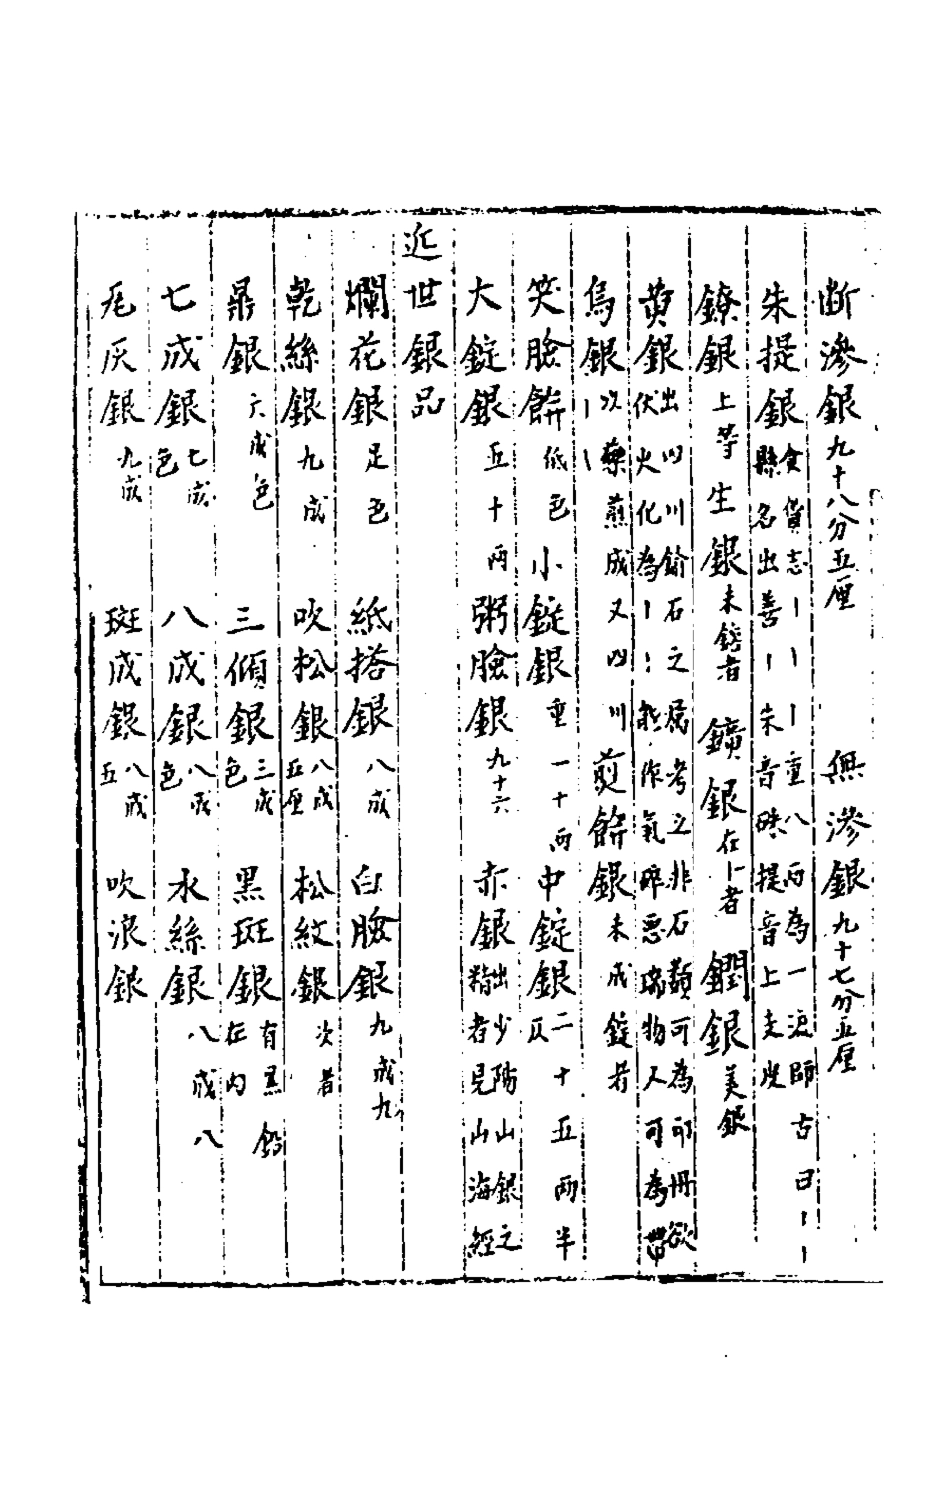 断滲銀九十八分五厘　無滲銀九十七分五厘
朱提銀食貨志丨丨丨重八兩為一流師古曰丨丨縣名出善丨朱音殊提音上支反
鐐銀上等　生銀未鎔者　鑛銀在丨者　鐗銀美銀
黄銀出四川鍮石之属考之非石類可為印冊欲伏火化為丨丨能作氣碎悪瑞物人可為帶
烏銀丨丨以藥煎成又四川　煎餅銀未成錠者
笑臉餅低色　小錠銀重一十両　中錠銀二十五兩半仄
大錠銀五十兩　粥臉銀九十六　赤銀出少陽山銀之精者見山海經
近世銀品
爛花銀足色　紙搭銀八成　白臉銀九成九
乾絲銀九成　吹松銀八成五厘　松紋銀次者
鼎銀六成色　三傾銀三成色　黑斑銀有黑鉛在内
七成銀七成色　八成銀八成色　水絲銀八成八
灰銀九成　斑成銀八成五　吹浪銀